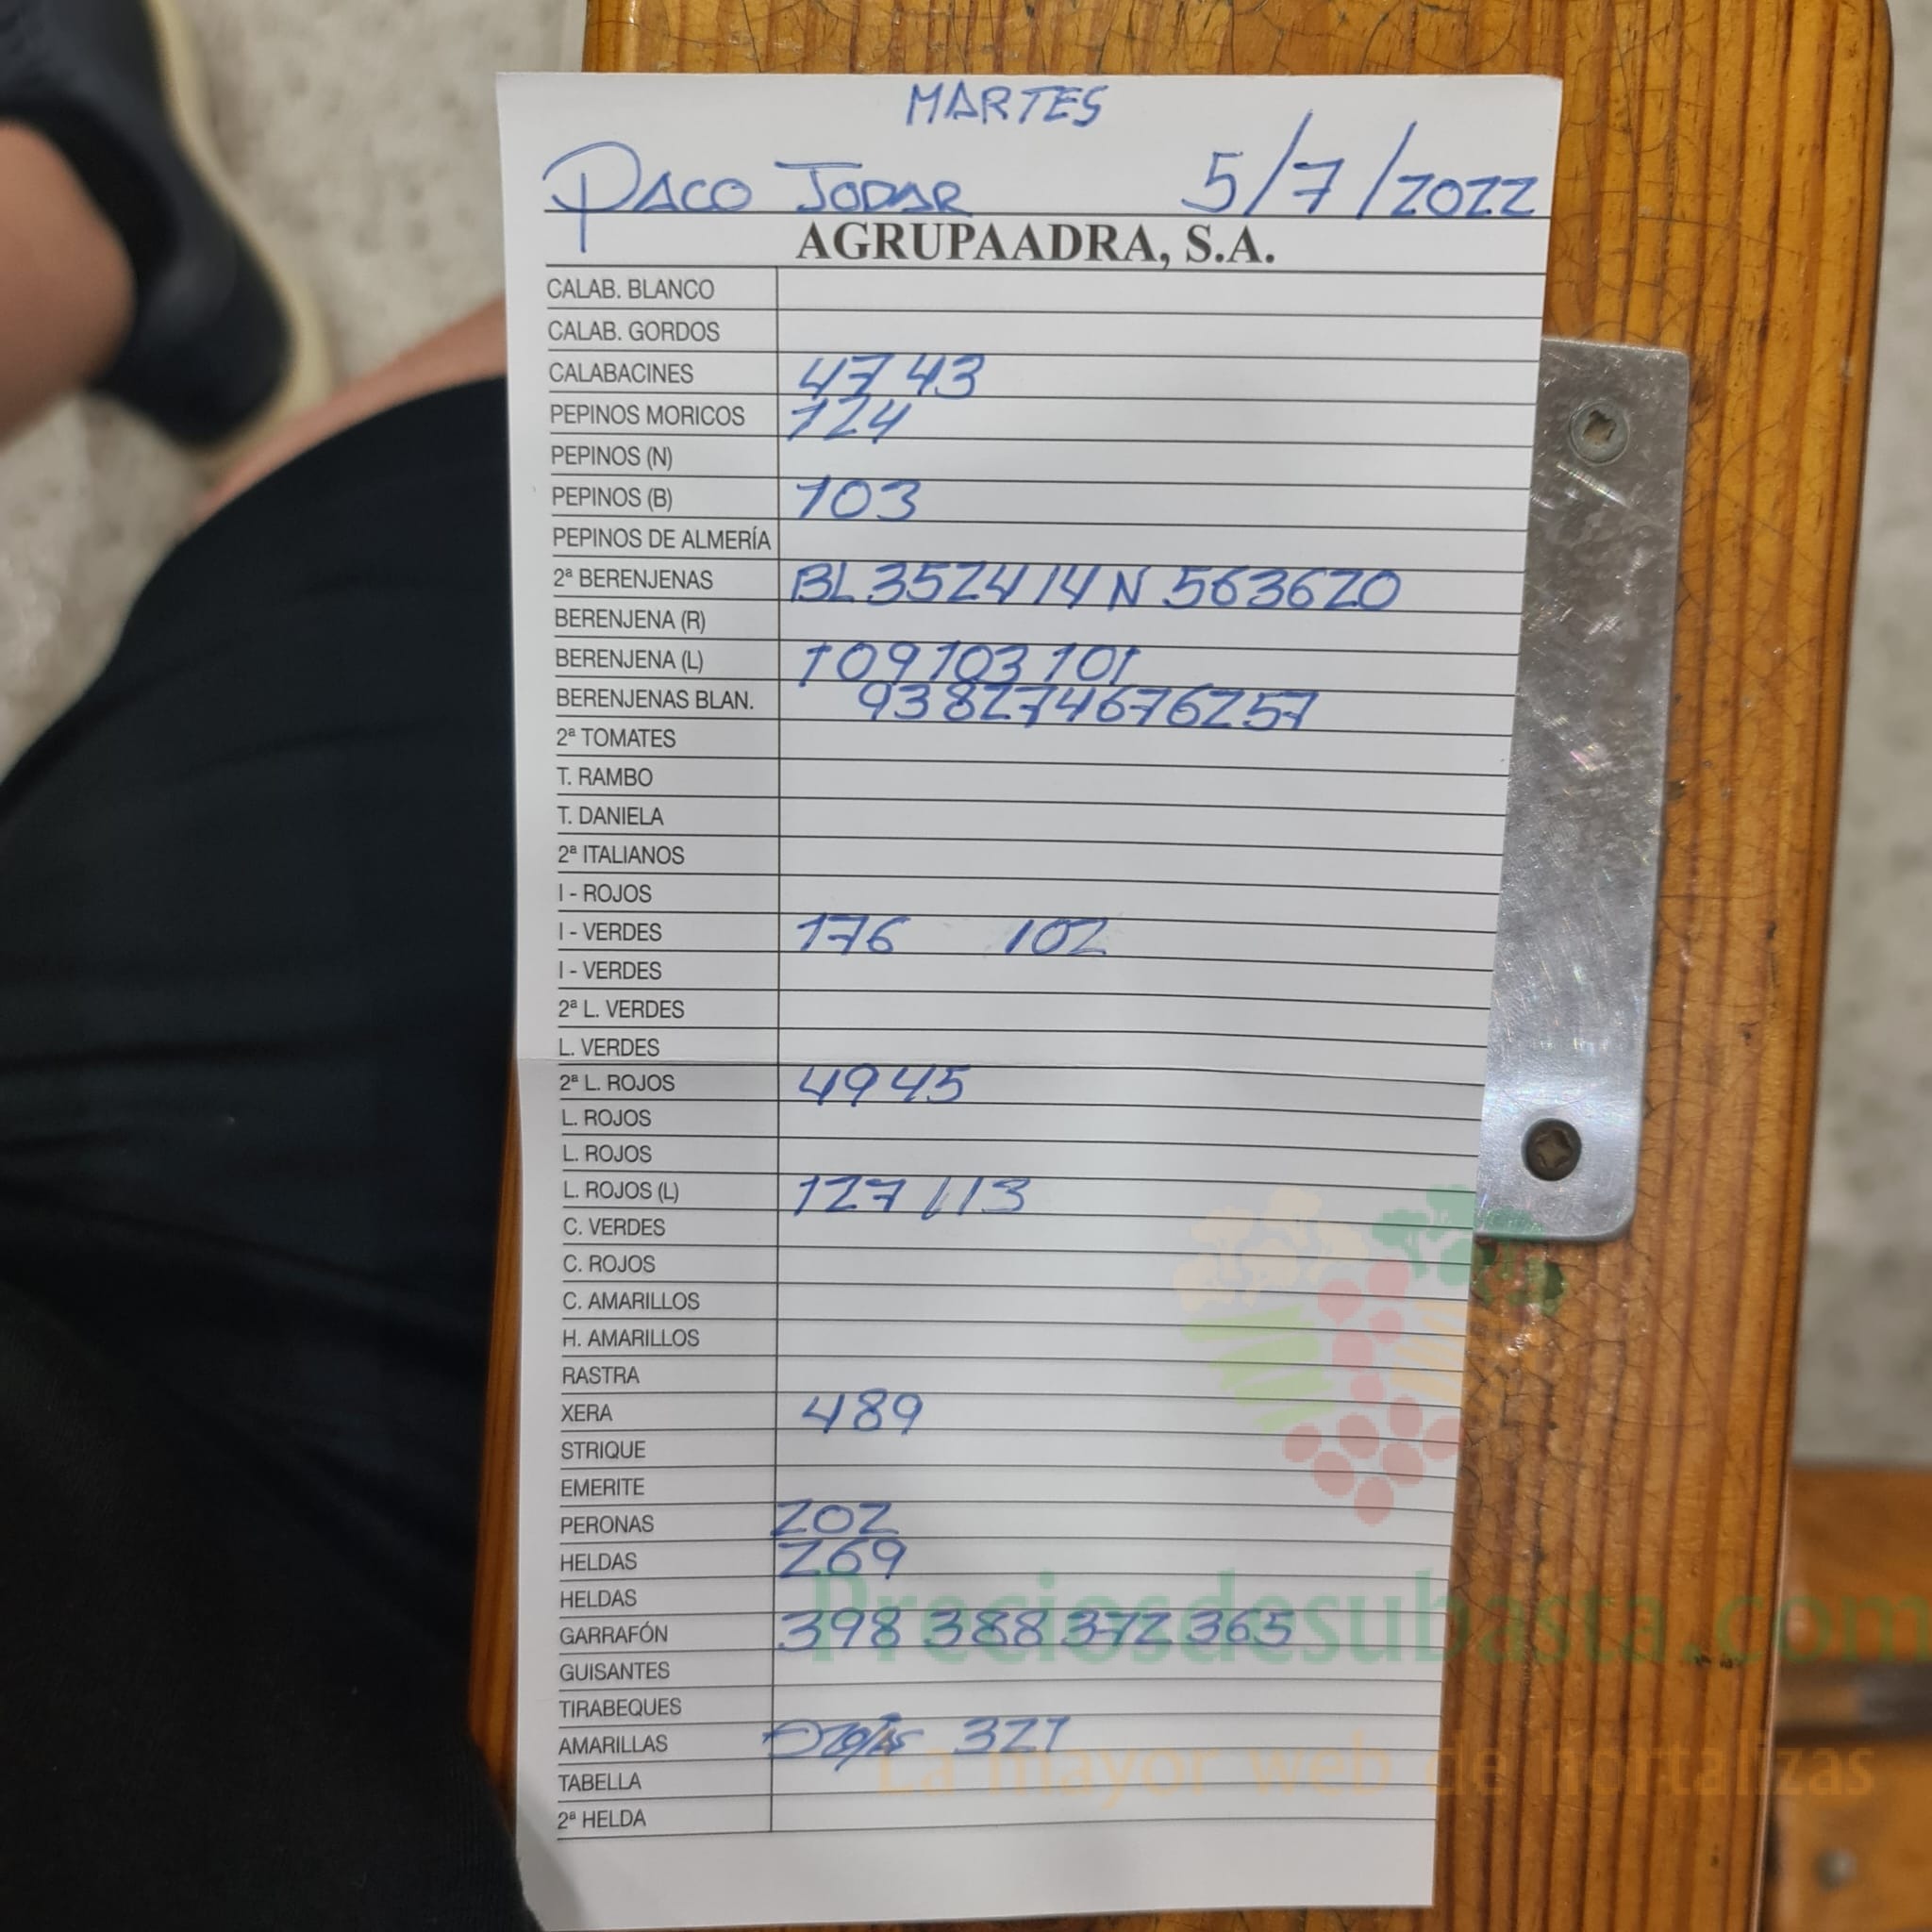 MARTES
PACO JODAR 5/7/2022
AGRUPAADRA, S.A.
CALAB. BLANCO
CALAB. GORDOS
CALABACINES 47 43
PEPINOS MORICOS 124
PEPINOS (N)
PEPINOS (B) 103
PEPINOS DE ALMERÍA
2ª BERENJENAS BL 35 24 14 N 56 36 20
BERENJENA (R)
BERENJENA (L) 109 103 101
BERENJENAS BLAN. 93 82 74 67 62 57
2ª TOMATES
T. RAMBO
T. DANIELA
2ª ITALIANOS
I - ROJOS
I - VERDES 176 102
I - VERDES
2ª L. VERDES
L. VERDES
2ª L. ROJOS 49 45
L. ROJOS
L. ROJOS
L. ROJOS (L) 127 113
C. VERDES
C. ROJOS
C. AMARILLOS
H. AMARILLOS
RASTRA
XERA 489
STRIQUE
EMERITE
PERONAS 202
HELDAS 269
HELDAS
GARRAFÓN 398 388 372 365
GUISANTES
TIRABEQUES
AMARILLAS 321
TABELLA
2ª HELDA
Preciosdesubasta.com
La mayor web de hortalizas